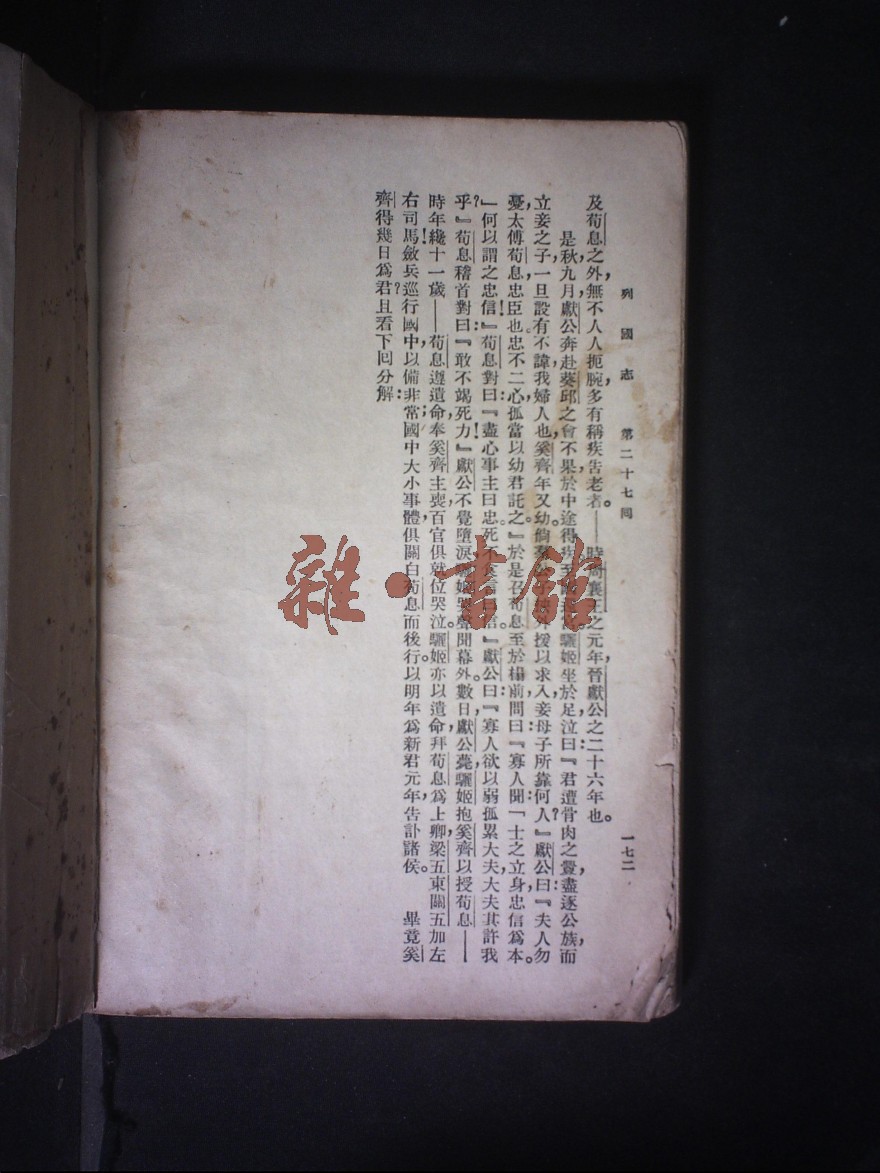 列國志 第二十七回 一七二
及荀息之外，無不人人扼腕，多有稱疾告老者。——時周襄王之元年，晉獻公之二十六年也。
是秋九月，獻公奔赴葵邱之會，不果，於中途得疾，至國還宮，驪姬坐於足，泣曰：『君遭骨肉之釁，盡逐公族，而
立妾之子，一旦設有不諱，我婦人也，奚齊年又幼，倘羣公子挾外援以求入，妾母子所靠何人？』獻公曰：『夫人勿
憂，太傅荀息，忠臣也，忠不二心，孤當以幼君託之。』於是召荀息至於榻前，問曰：『寡人聞「士之立身，忠信爲本。
」何以謂之忠信？』荀息對曰：『盡心事主曰忠，死不食言曰信。』獻公曰：『寡人欲以弱孤累大夫，大夫其許我
乎？』荀息稽首對曰：『敢不竭死力！』獻公不覺墮淚，驪姬哭聲聞幕外，數日，獻公薨，驪姬抱奚齊以授荀息——
時年纔十一歲——荀息遵遺命，奉奚齊主喪，百官俱就位哭泣。驪姬亦以遺命，拜荀息爲上卿，梁五東關五加左
右司馬，斂兵巡行國中，以備非常；國中大小事體，俱關白荀息而後行。以明年爲新君元年，告訃諸侯。 畢竟奚
齊得幾日爲君？且看下回分解：
雜·書館